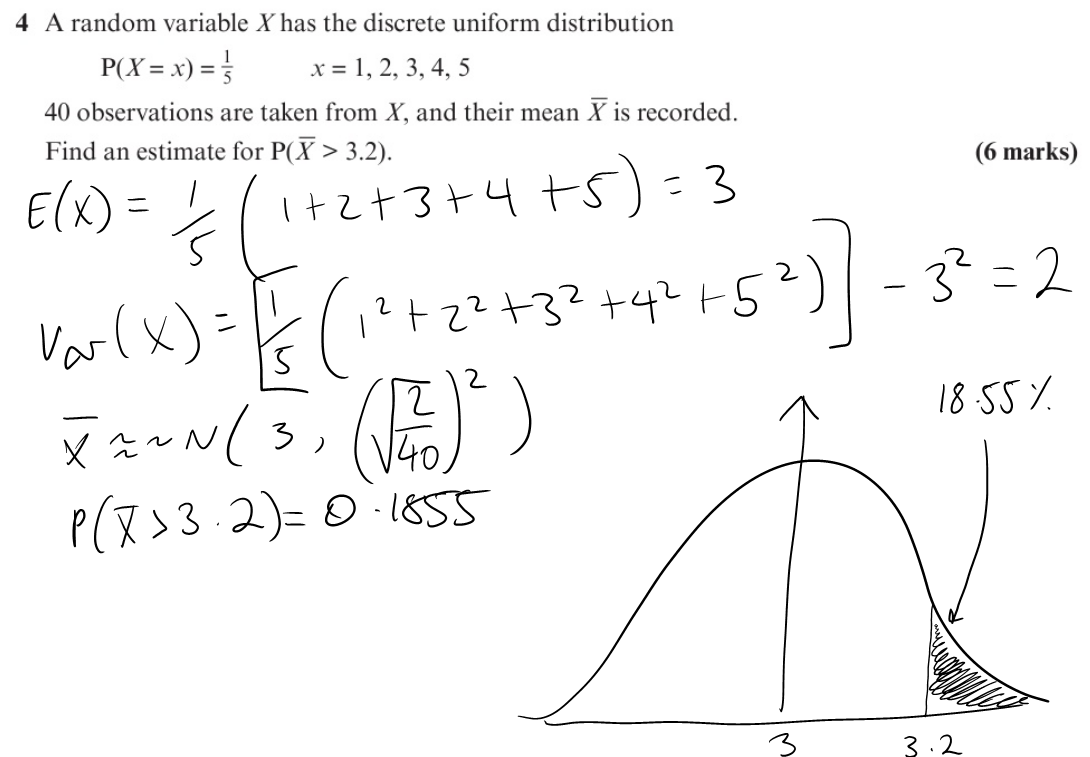 4 A random variable X has the discrete uniform distribution
P(X = x) = 1/5    x = 1, 2, 3, 4, 5
40 observations are taken from X, and their mean X̄ is recorded.
Find an estimate for P(X̄ > 3.2).    (6 marks)
E(X) = 1/5 (1+2+3+4+5) = 3
Var(X) = [1/5 (1²+2²+3²+4²+5²)] - 3² = 2
18.55%
X̄ ≈~N(3, (√(2/40))²)
P(X̄>3.2)= 0.1855
3    3.2